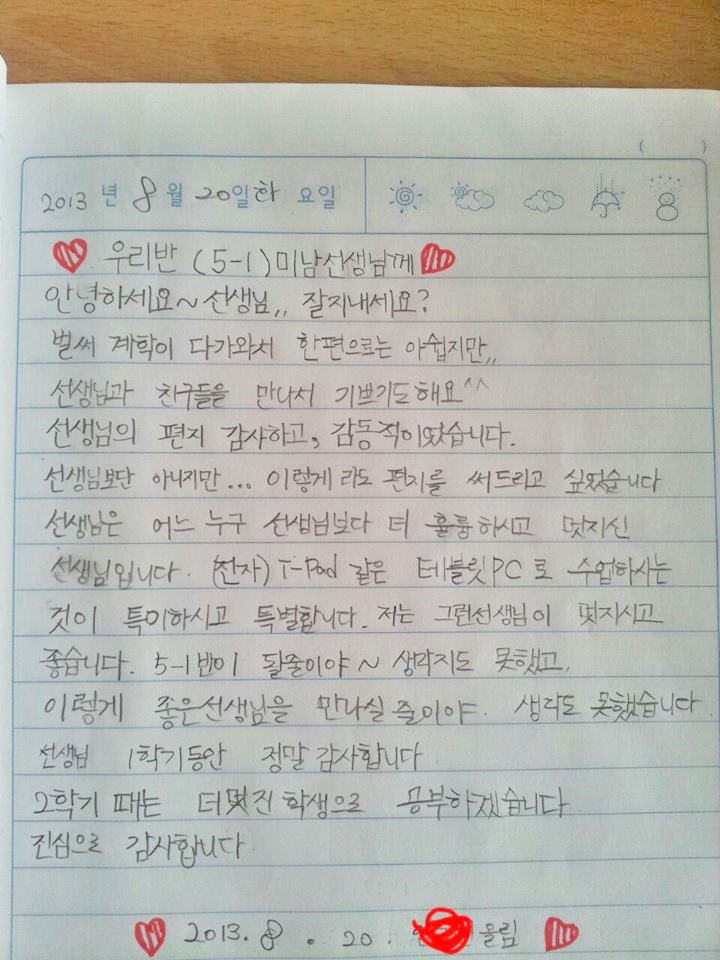 2013 년 8 월 20일 화 요일
우리반 (5-1) 미남선생님께
안녕하세요~ 선생님,, 잘지내세요?
벌써 계학이 다가와서 한편으로는 아쉽지만,,
선생님과 친구들을 만나서 기쁘기도해요^^
선생님의 편지 감사하고, 감동적이었습니다.
선생님보단 아니지만... 이렇게 라도 편지를 써드리고 싶었습니다
선생님은 어느 누구 선생님보다 더 훌륭하시고 멋지신
선생님입니다. (전자) T-Pad 같은 테블릿PC로 수업하시는
것이 특이하시고 특별합니다. 저는 그런선생님이 멋지시고
좋습니다. 5-1반이 될줄이야~ 생각지도 못했고,
이렇게 좋은선생님을 만나실 줄이야. 생각도 못했습니다.
선생님 1학기동안 정말 감사합니다
2학기 때는 더멋진 학생으로 공부하겠습니다
진심으로 감사합니다
2013. 8. 20. 올림